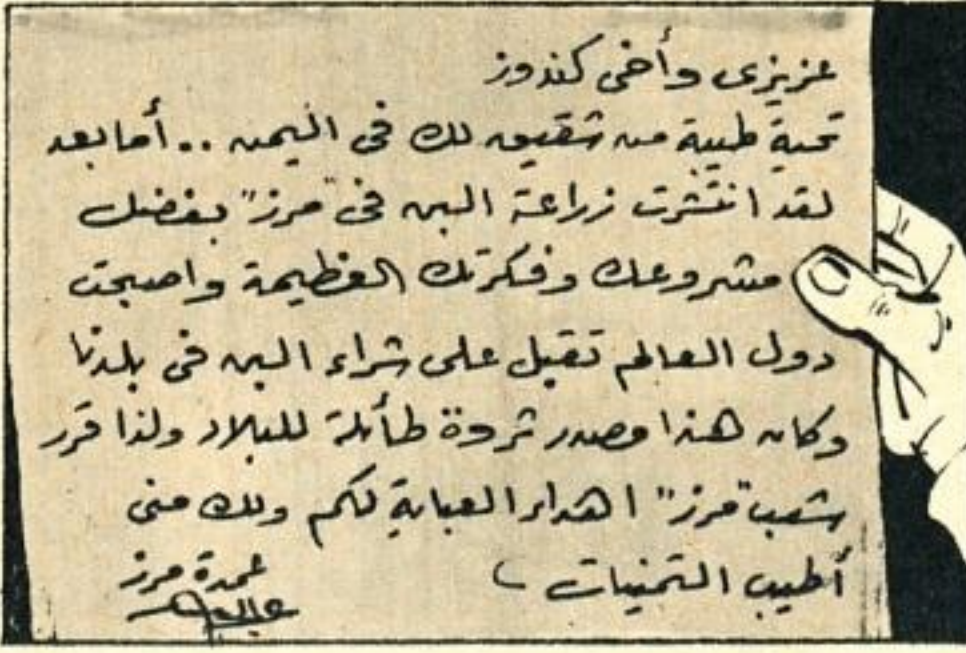 عزيزى وأخى كندوز
تحية طيبة من شقيق لك فى اليمن .. أما بعد
لقد انتشرت زراعة البن فى "مرز" بفضل
مشروعك وفكرتك العظيمة واصبحت
دول العالم تقبل على شراء البن فى بلدنا
وكان هذا مصدر ثروة طائلة للبلاد ولذا قرر
شعب "مرز" اهداء العباية لكم ولك منى
أطيب التمنيات
عمدة مرز